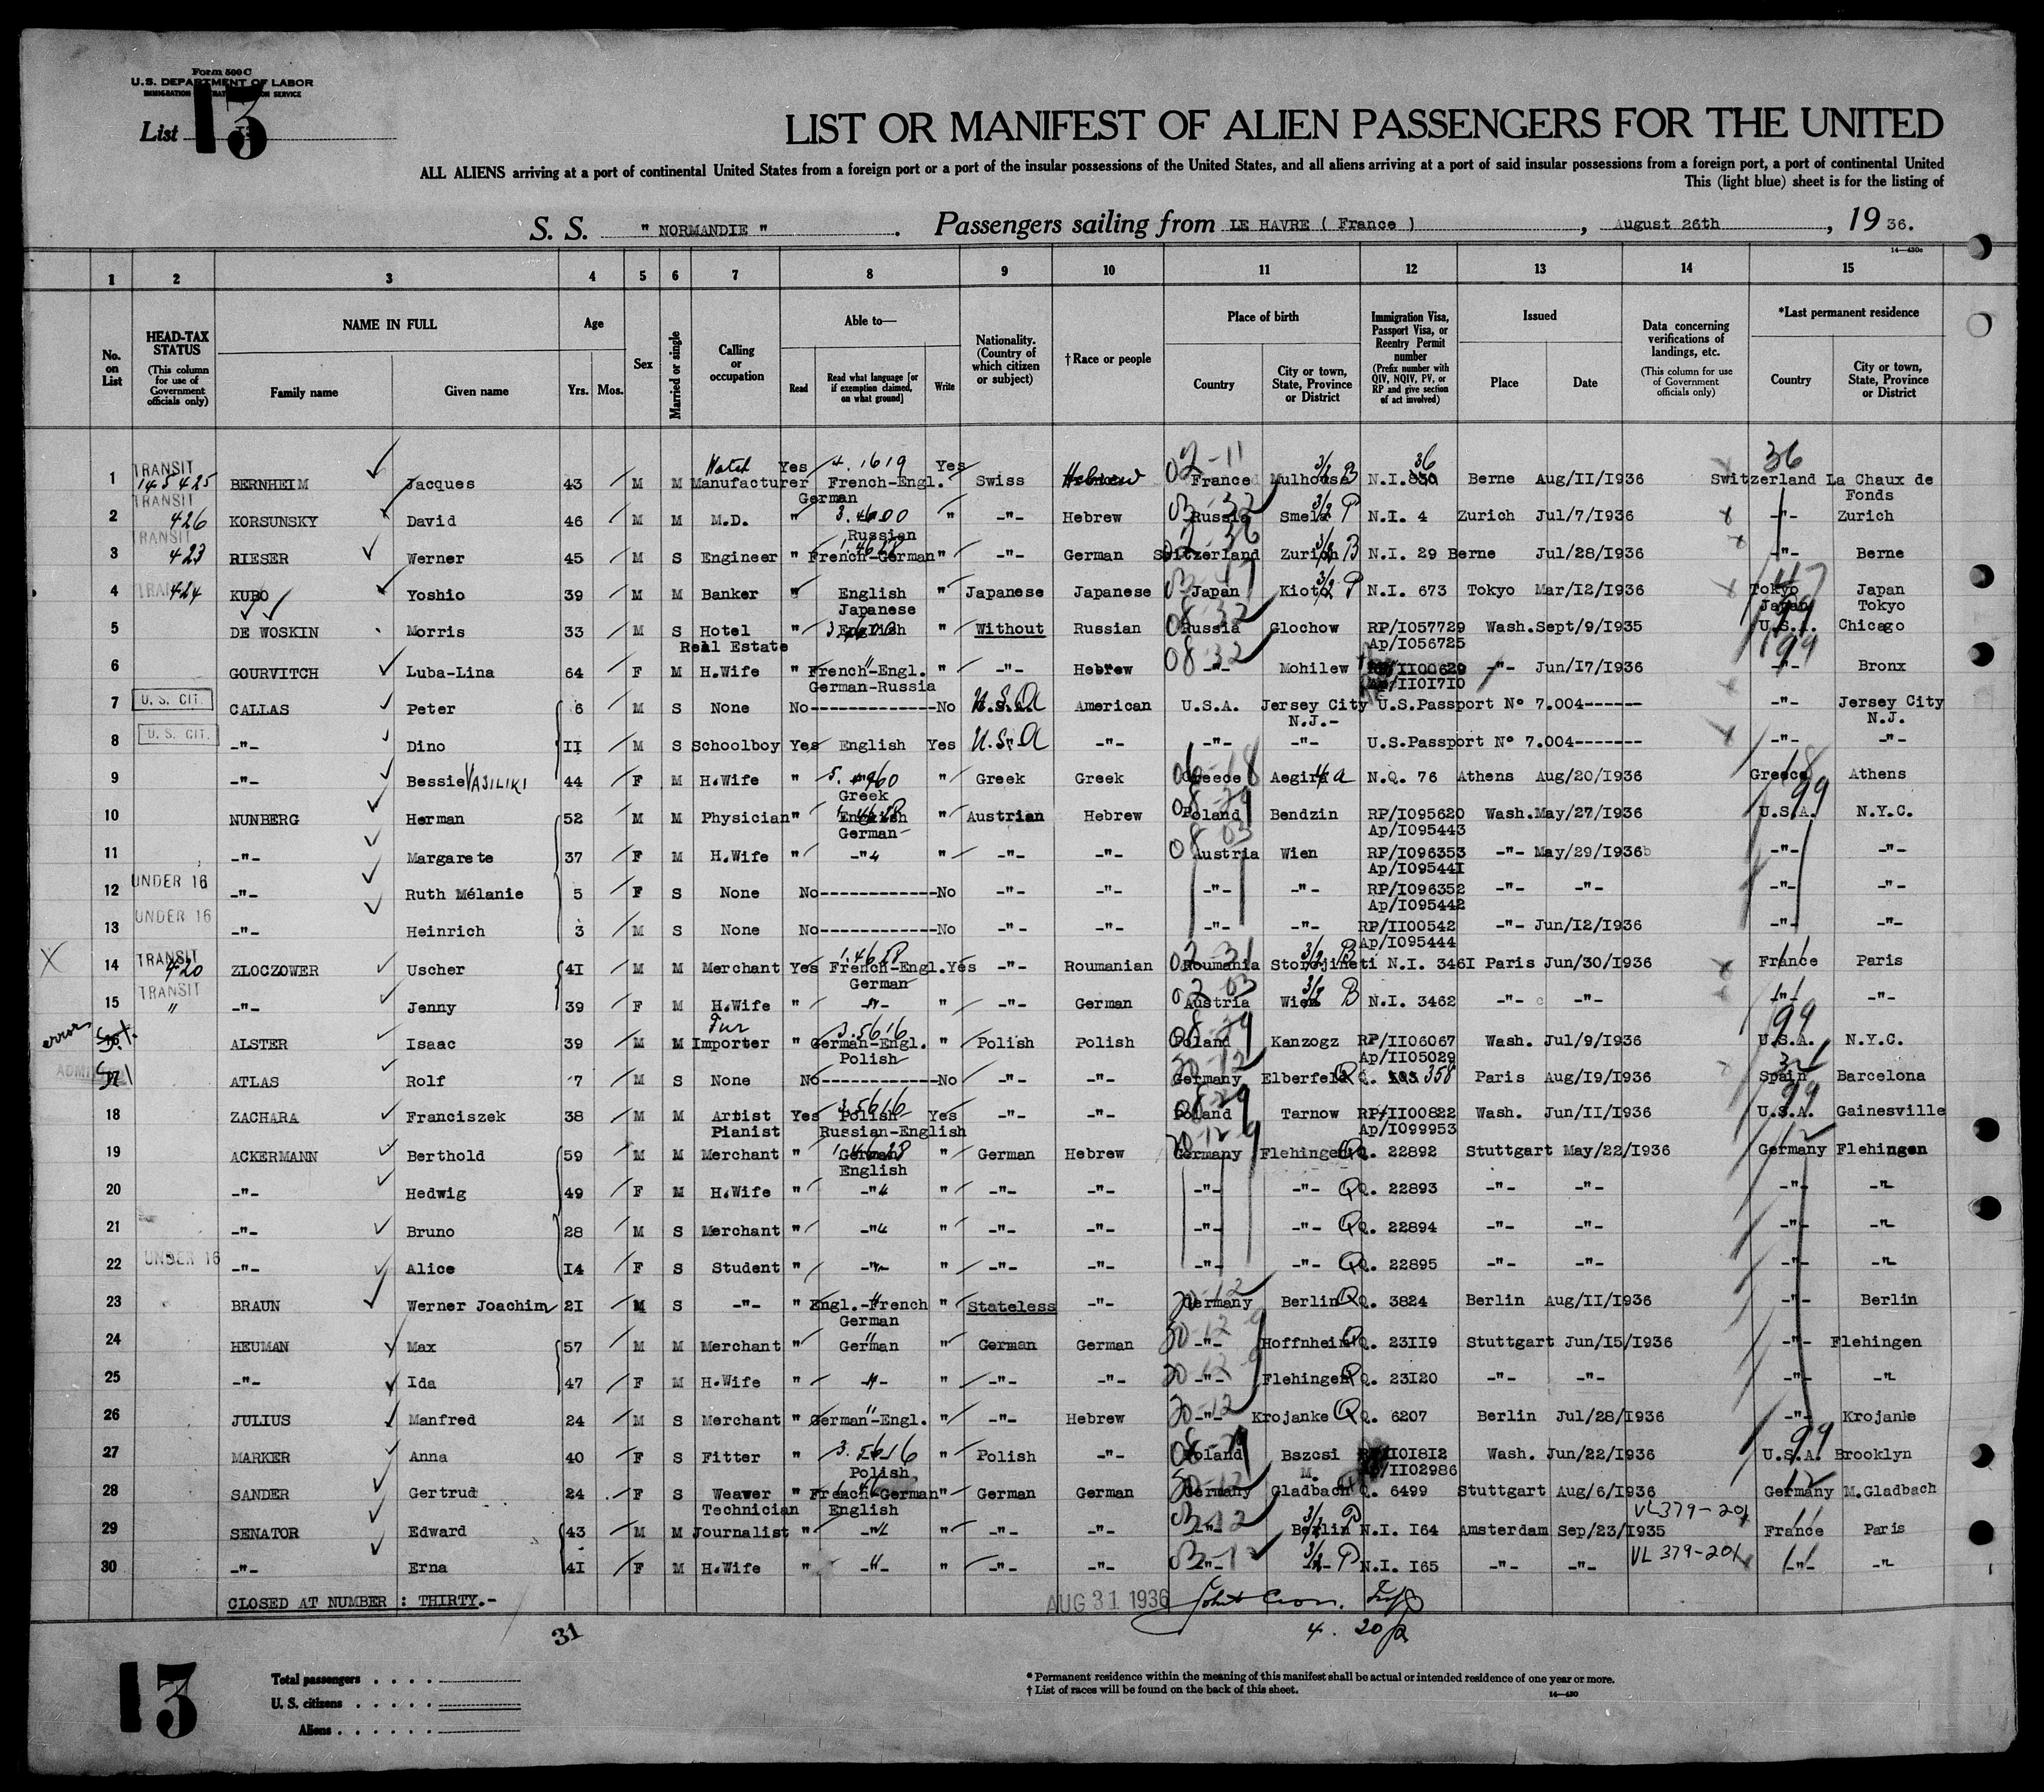 Form 500 C
U.S. DEPARTMENT OF LABOR
IMMIGRATION SERVICE
List 13
LIST OR MANIFEST OF ALIEN PASSENGERS FOR THE UNITED
ALL ALIENS arriving at a port of continental United States from a foreign port or a port of the insular possessions of the United States, and all aliens arriving at a port of said insular possessions from a foreign port, a port of continental United
This (light blue) sheet is for the listing of
S. S. " NORMANDIE " . Passengers sailing from LE HAVRE ( France ) , August 26th , 19 36.
14—430c
1 2 3 4 5 6 7 8 9 10 11 12 13 14 15
No. on List
HEAD-TAX STATUS (This column for use of Government officials only)
NAME IN FULL Family name Given name
Age Yrs. Mos.
Sex
Married or single
Calling or occupation
Able to— Read Read what language [or if exemption claimed, on what ground] Write
Nationality. (Country of which citizen or subject)
†Race or people
Place of birth Country City or town, State, Province or District
Immigration Visa, Passport Visa, or Reentry Permit number (Prefix number with QIV, NQIV, PV, or RP and give section of act involved)
Issued Place Date
Data concerning verifications of landings, etc. (This column for use of Government officials only)
*Last permanent residence Country City or town, State, Province or District
1 TRANSIT 145425 BERNHEIM Jacques 43 M M Watch Manufacturer Yes French-Engl. German Yes Swiss Hebrew France Mulhouse N.I. 36 Berne Aug/II/I936 Switzerland La Chaux de Fonds
2 TRANSIT 426 KORSUNSKY David 46 M M M.D. " Russian " -"- Hebrew Russia Smela N.I. 4 Zurich Jul/7/I936 -"- Zurich
3 TRANSIT 423 RIESER Werner 45 M S Engineer " French-German " -"- German Switzerland Zurich N.I. 29 Berne Jul/28/I936 -"- Berne
4 TRANSIT 424 KUBO Yoshio 39 M M Banker " English Japanese " Japanese Japanese Japan Kioto N.I. 673 Tokyo Mar/I2/I936 Tokyo Japan Japan Tokyo
5 DE WOSKIN Morris 33 M S Hotel Real Estate " English " Without Russian Russia Glochow RP/I057729 Ap/I056725 Wash. Sept/9/I935 U.S.A. Chicago
6 GOURVITCH Luba-Lina 64 F M H.Wife " French-Engl. German-Russia " -"- Hebrew -"- Mohilew II00629 Ap/II0I7I0 -"- Jun/I7/I936 -"- Bronx
7 U. S. CIT. CALLAS Peter 6 M S None No--------------No U.S.A. American U.S.A. Jersey City N.J.- U.S.Passport N° 7.004------ -"- Jersey City N.J.
8 U. S. CIT. -"- Dino II M S Schoolboy Yes English Yes U.S.A -"- -"- -"- U.S.Passport N° 7.004------- -"- -"-
9 -"- Bessie VASILIKI 44 F M H.Wife " Greek " Greek Greek Greece Aegira N.Q. 76 Athens Aug/20/I936 Greece Athens
10 NUNBERG Herman 52 M M Physician " English German " Austrian Hebrew Poland Bendzin RP/I095620 Ap/I095443 Wash. May/27/I936 U.S.A. N.Y.C.
11 -"- Margarete 37 F M H.Wife " -"- " -"- -"- Austria Wien RP/I096353 Ap/I09544I -"- May/29/I936 -"- -"-
12 UNDER 16 -"- Ruth Mélanie 5 F S None No-------------No -"- -"- -"- -"- RP/I096352 Ap/I095442 -"- -"- -"- -"-
13 UNDER 16 -"- Heinrich 3 M S None No-------------No -"- -"- -"- -"- RP/II00542 Ap/I095444 -"- Jun/I2/I936 -"- -"-
14 TRANSIT 420 ZLOCZOWER Uscher 4I M M Merchant Yes French-Engl. German Yes -"- Roumanian Roumania Storojineti N.I. 346I Paris Jun/30/I936 France Paris
15 TRANSIT " -"- Jenny 39 F M H.Wife " -"- " -"- German Austria Wien N.I. 3462 -"- -"- -"- -"-
error 16 ALSTER Isaac 39 M M Fur Importer " German-Engl. Polish " Polish Polish Poland Kanzogz RP/II06067 Ap/II05029 Wash. Jul/9/I936 U.S.A. N.Y.C.
17 ATLAS Rolf 7 M S None No-------------No -"- -"- Germany Elberfeld Q. 358 Paris Aug/I9/I936 Spain Barcelona
18 ZACHARA Franciszek 38 M M Artist Pianist Yes Polish Russian-English Yes -"- -"- Poland Tarnow RP/II00822 Ap/I099953 Wash. Jun/II/I936 U.S.A. Gainesville
19 ACKERMANN Berthold 59 M M Merchant " German English " German Hebrew Germany Flehingen Q. 22892 Stuttgart May/22/I936 Germany Flehingen
20 -"- Hedwig 49 F M H.Wife " -"- " -"- -"- -"- -"- Q. 22893 -"- -"- -"- -"-
21 -"- Bruno 28 M S Merchant " -"- " -"- -"- -"- -"- Q. 22894 -"- -"- -"- -"-
22 UNDER 16 -"- Alice I4 F S Student " -"- " -"- -"- -"- -"- Q. 22895 -"- -"- -"- -"-
23 BRAUN Werner Joachim 2I M S -"- " Engl.-French German " Stateless -"- Germany Berlin Q. 3824 Berlin Aug/II/I936 -"- Berlin
24 HEUMAN Max 57 M M Merchant " German " German German -"- Hoffnheim Q. 23II9 Stuttgart Jun/I5/I936 -"- Flehingen
25 -"- Ida 47 F M H.Wife " -"- " -"- -"- -"- Flehingen Q. 23I20 -"- -"- -"- -"-
26 JULIUS Manfred 24 M S Merchant " German-Engl. " -"- Hebrew -"- Krojanke Q. 6207 Berlin Jul/28/I936 -"- Krojanke
27 MARKER Anna 40 F S Fitter " Polish " Polish -"- Poland Bszcsi RP/II0I8I2 Ap/II02986 Wash. Jun/22/I936 U.S.A. Brooklyn
28 SANDER Gertrud 24 F S Weawer Technician " French-German English " German German Germany M. Gladbach Q. 6499 Stuttgart Aug/6/I936 Germany M.Gladbach
29 SENATOR Edward 43 M M Journalist " -"- " -"- -"- -"- Berlin N.I. I64 Amsterdam Sep/23/I935 VL379-201 France Paris
30 -"- Erna 4I F M H.Wife " -"- " -"- -"- -"- -"- N.I. I65 -"- -"- VL 379-201 -"- -"-
CLOSED AT NUMBER : THIRTY.-
AUG 31 1936
31
4. 20
13
Total passengers . . . .
U. S. citizens . . . . .
Aliens . . . . . .
* Permanent residence within the meaning of this manifest shall be actual or intended residence of one year or more.
† List of races will be found on the back of this sheet.
14—430